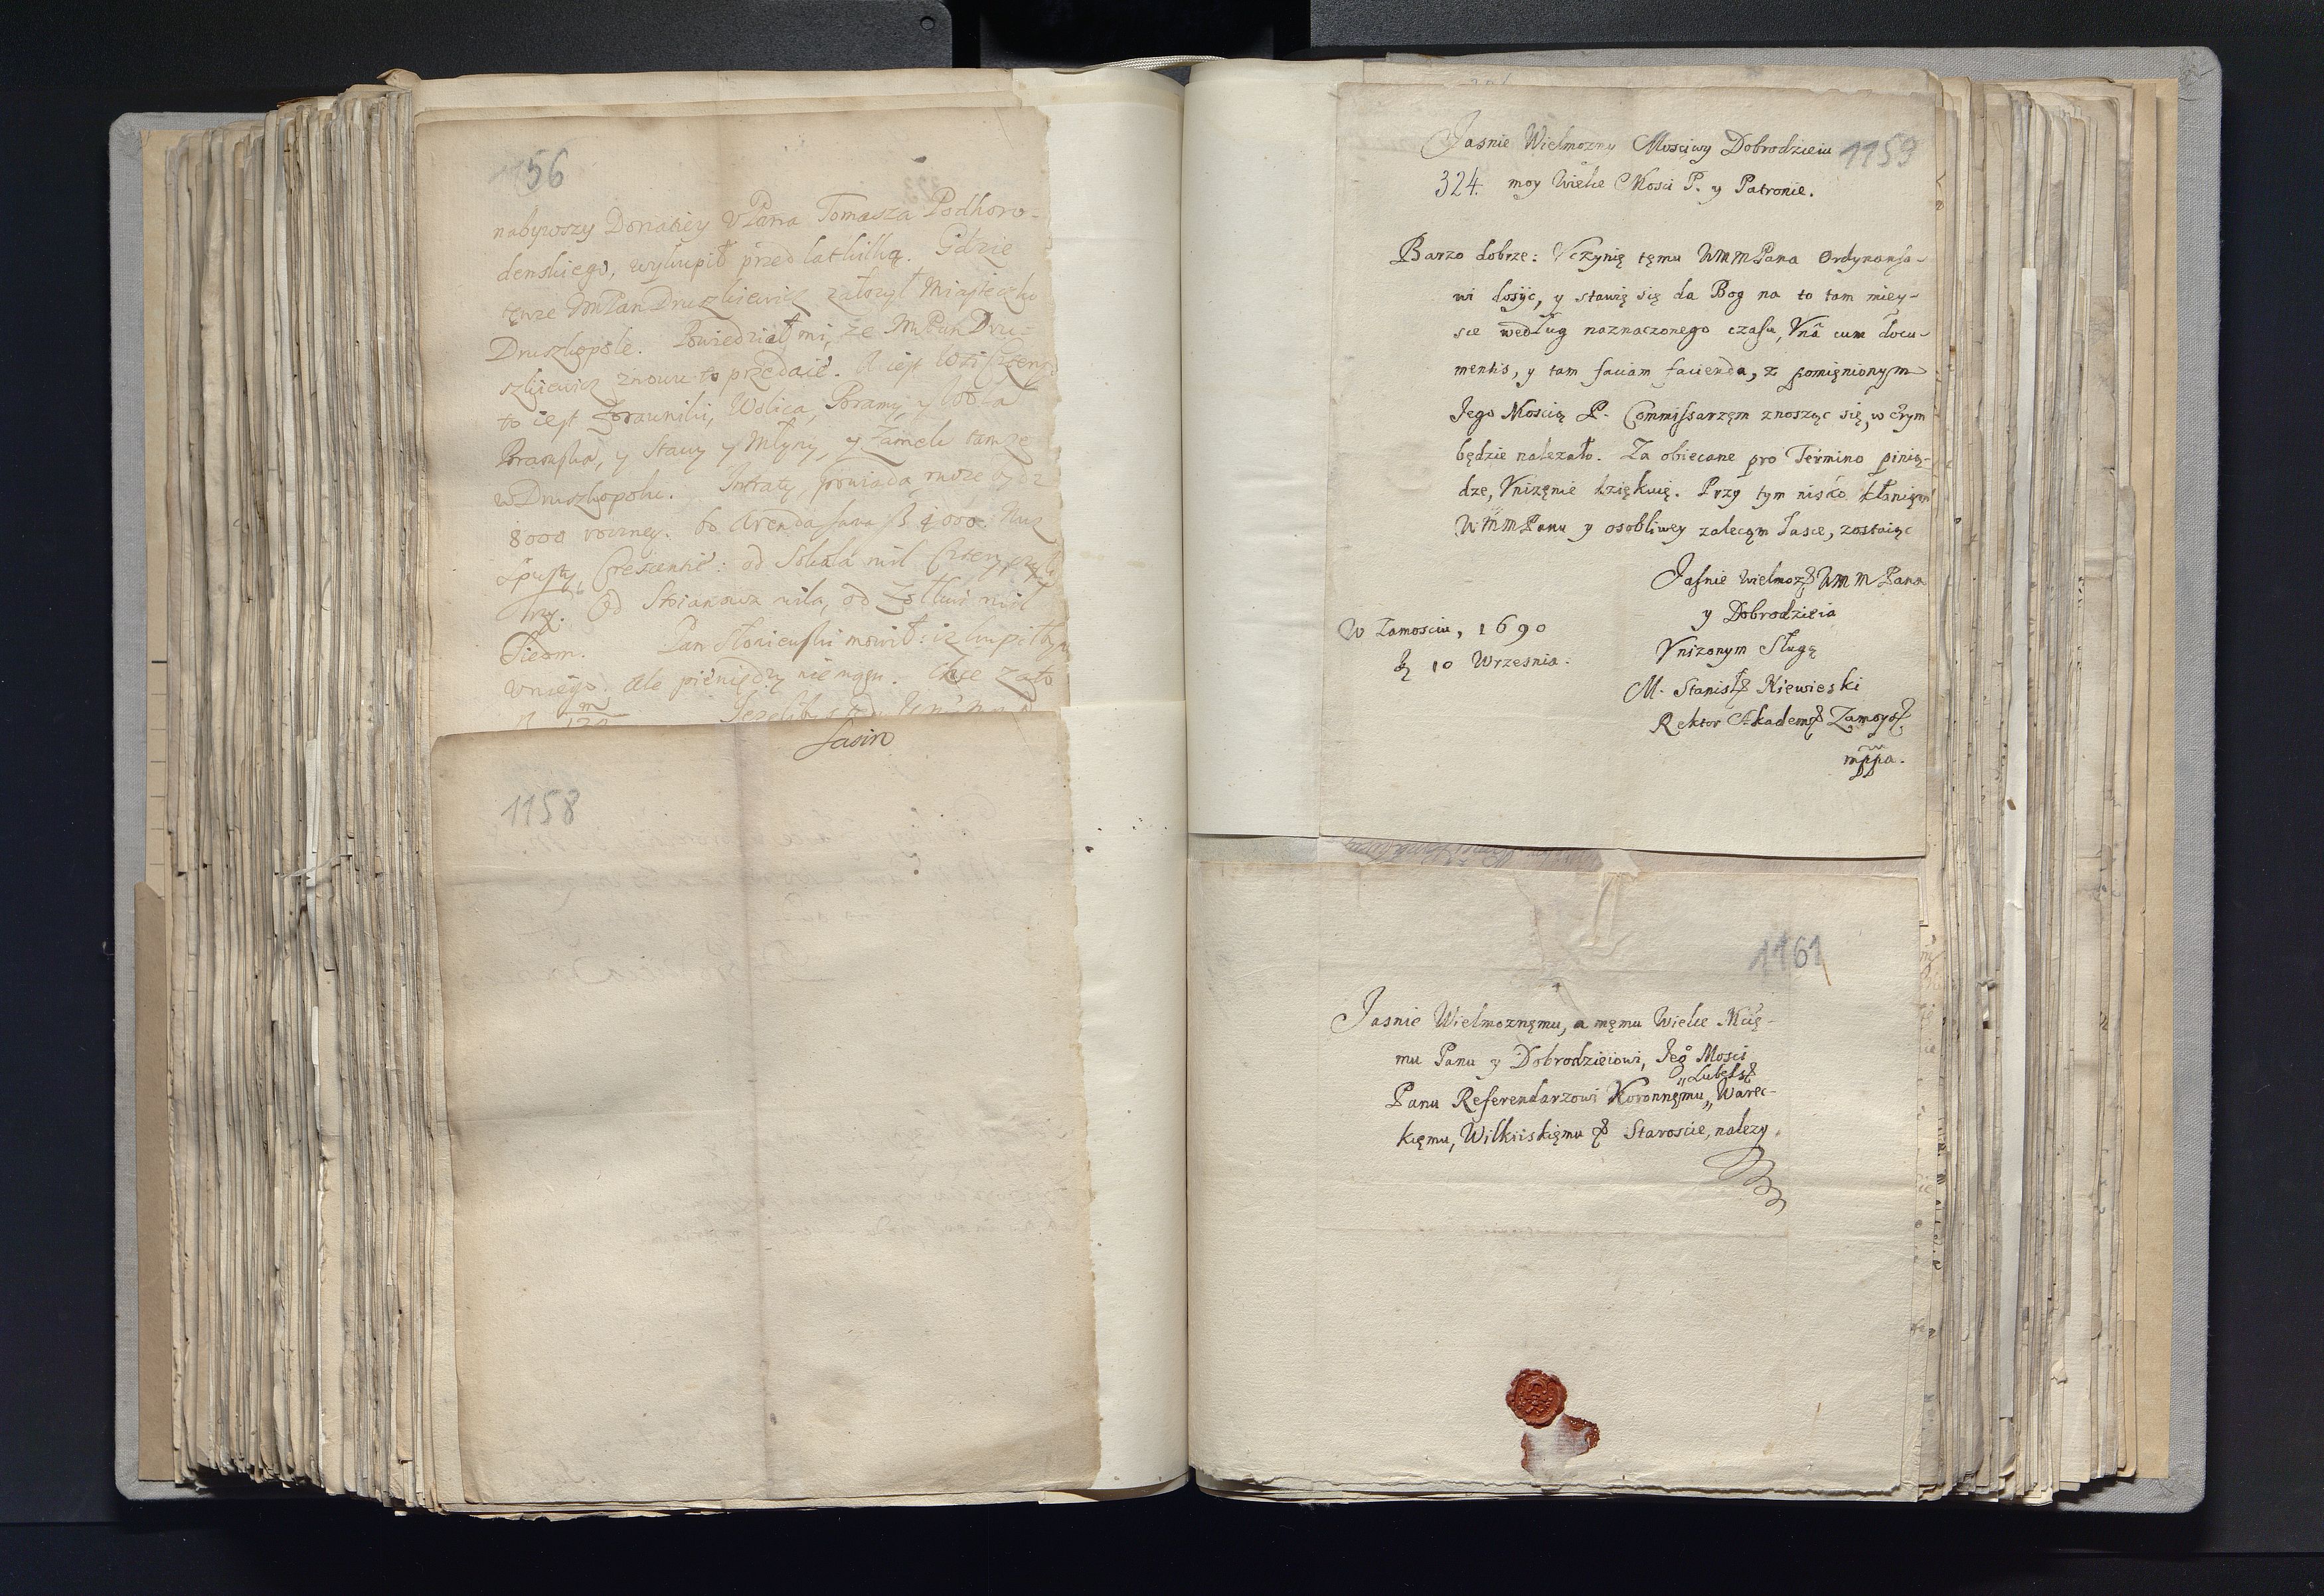 1156
nabywszy Donatiey V Pana Tomasza Podhoro-
denskiego, wykupił przed lat kilką. Gdzie
tęnze ImPan Druszkiewicz załozył Miasteczko
Druszkopole. Powiedział mi, ze ImPan Dru-
szkiewicz znowu to przedaie. A iest Wsi
to iest Zorawniki, Wolica, Poramy, y Wola
y Stawy y Młyny, y Zamek tamze
w Druszkopolu. Intraty, powiada moze bydz
8000 roczney. bo Arenda sama 4000.
od Sokala mil
Trzy. Od Stoianowa mila, od Zołkwi mil
Siedm. Pan Słoniewski mowił: iz kupiłbym
v niego. Ale pieniędzy nie mam. Chce za to
Jasin
1158
1159
Jasnie Wielmozny Mosciwy Dobrodzieiu
324. moy Wielce Mosci P. y Patronie.
Barzo dobrze: Vczynię tęmu WMMPana Ordynansо-
wi dosyc, y stawię się da Bog na to tam miey-
sce według naznaczonego czasu, Vnâ cum docu-
mentis, y tam faciam facienda, z pomięnionym
Jego Moscią P. Commissarzęm znosząc się, w czym
będzie nalezało. Za obiecane pro Termino pinią-
dze, Vnizęnie dziękuię. Przy tym nisko kłanięm
WMMPanu y osobliwey zalecąm łasce, zostaiąc
Jasnie Wielmoz WMMPana
y Dobrodzieia
W Zamosciu, 1690
Vnizonym Sługą
10 Wrzesnia.
M. Stanisł Kiewieski
Rektor Akadem Zamoys
mppa.
1161
Jasnie Wielmoznęmu, a męmu Wielce Mcię-
mu Panu y Dobrodzieiowi, Jeo Mosci
"Lubels
Panu Referendarzowi Koronnęmu,, Warec-
kięmu, Wilkiiskięmu Staroscie, nalezy.